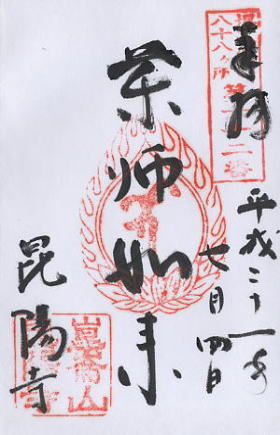 八十八ヶ所
奉拝
平成二十一年
七月四日
薬師如来
昆陽寺
崑崙山